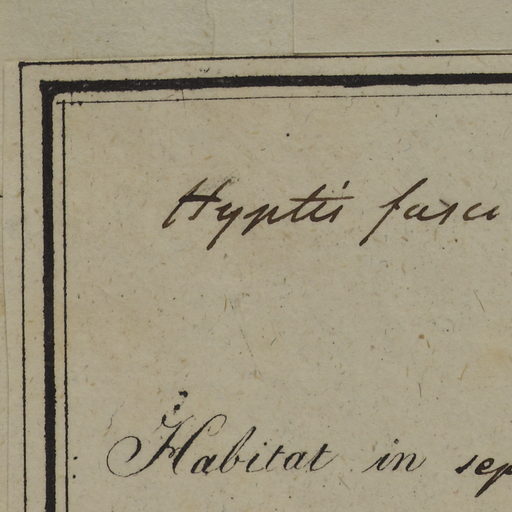 Hyptis fasci
Habitat in sep